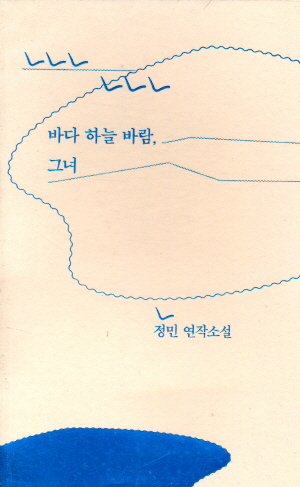 바다 하늘 바람,
그녀
정민 연작소설